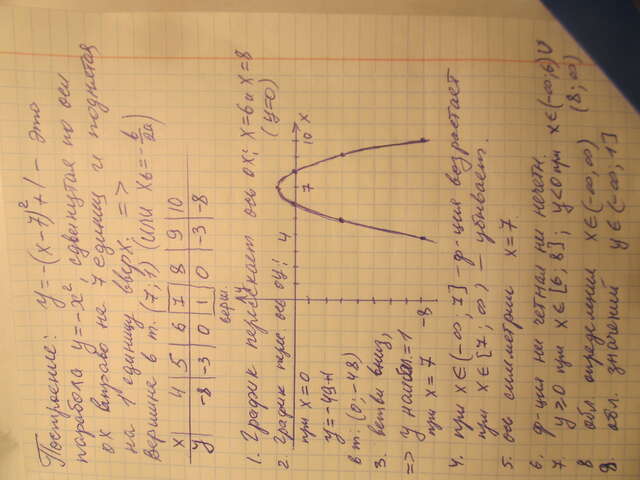 Построение: y = -(x-7)² + 1 - это
парабола y = -x² сдвинутая по оси
ox вправо на 7 единиц и поднятая
на 1 единицу вверх. =>
вершина в т. (7; 1) (или x в = -b/2a)
x | 4 | 5 | 6 | 7 | 8 | 9 | 10
y | -8 | -3 | 0 | 1 | 0 | -3 | -8
верш.
1. График пересекает ось ox: x=6 и x=8
(y=0)
2. График перес. ось oy:
при x=0
y = -49+1
в т. (0; -48)
3. ветви вниз,
=> y наиб. = 1
при x = 7
y
4
7
10
x
-8
4. при x∈(-∞; 7] - ф-ция возрастает
при x∈[7; ∞) - убывает.
5. ось симметрии x=7.
6. ф-ция ни четная ни нечетн.
7. y≥0 при x∈[6; 8]; y<0 при x∈(-∞; 6)∪
(8; ∞)
8 обл определения x∈(-∞, ∞)
9. обл. значений y∈(-∞, 1]